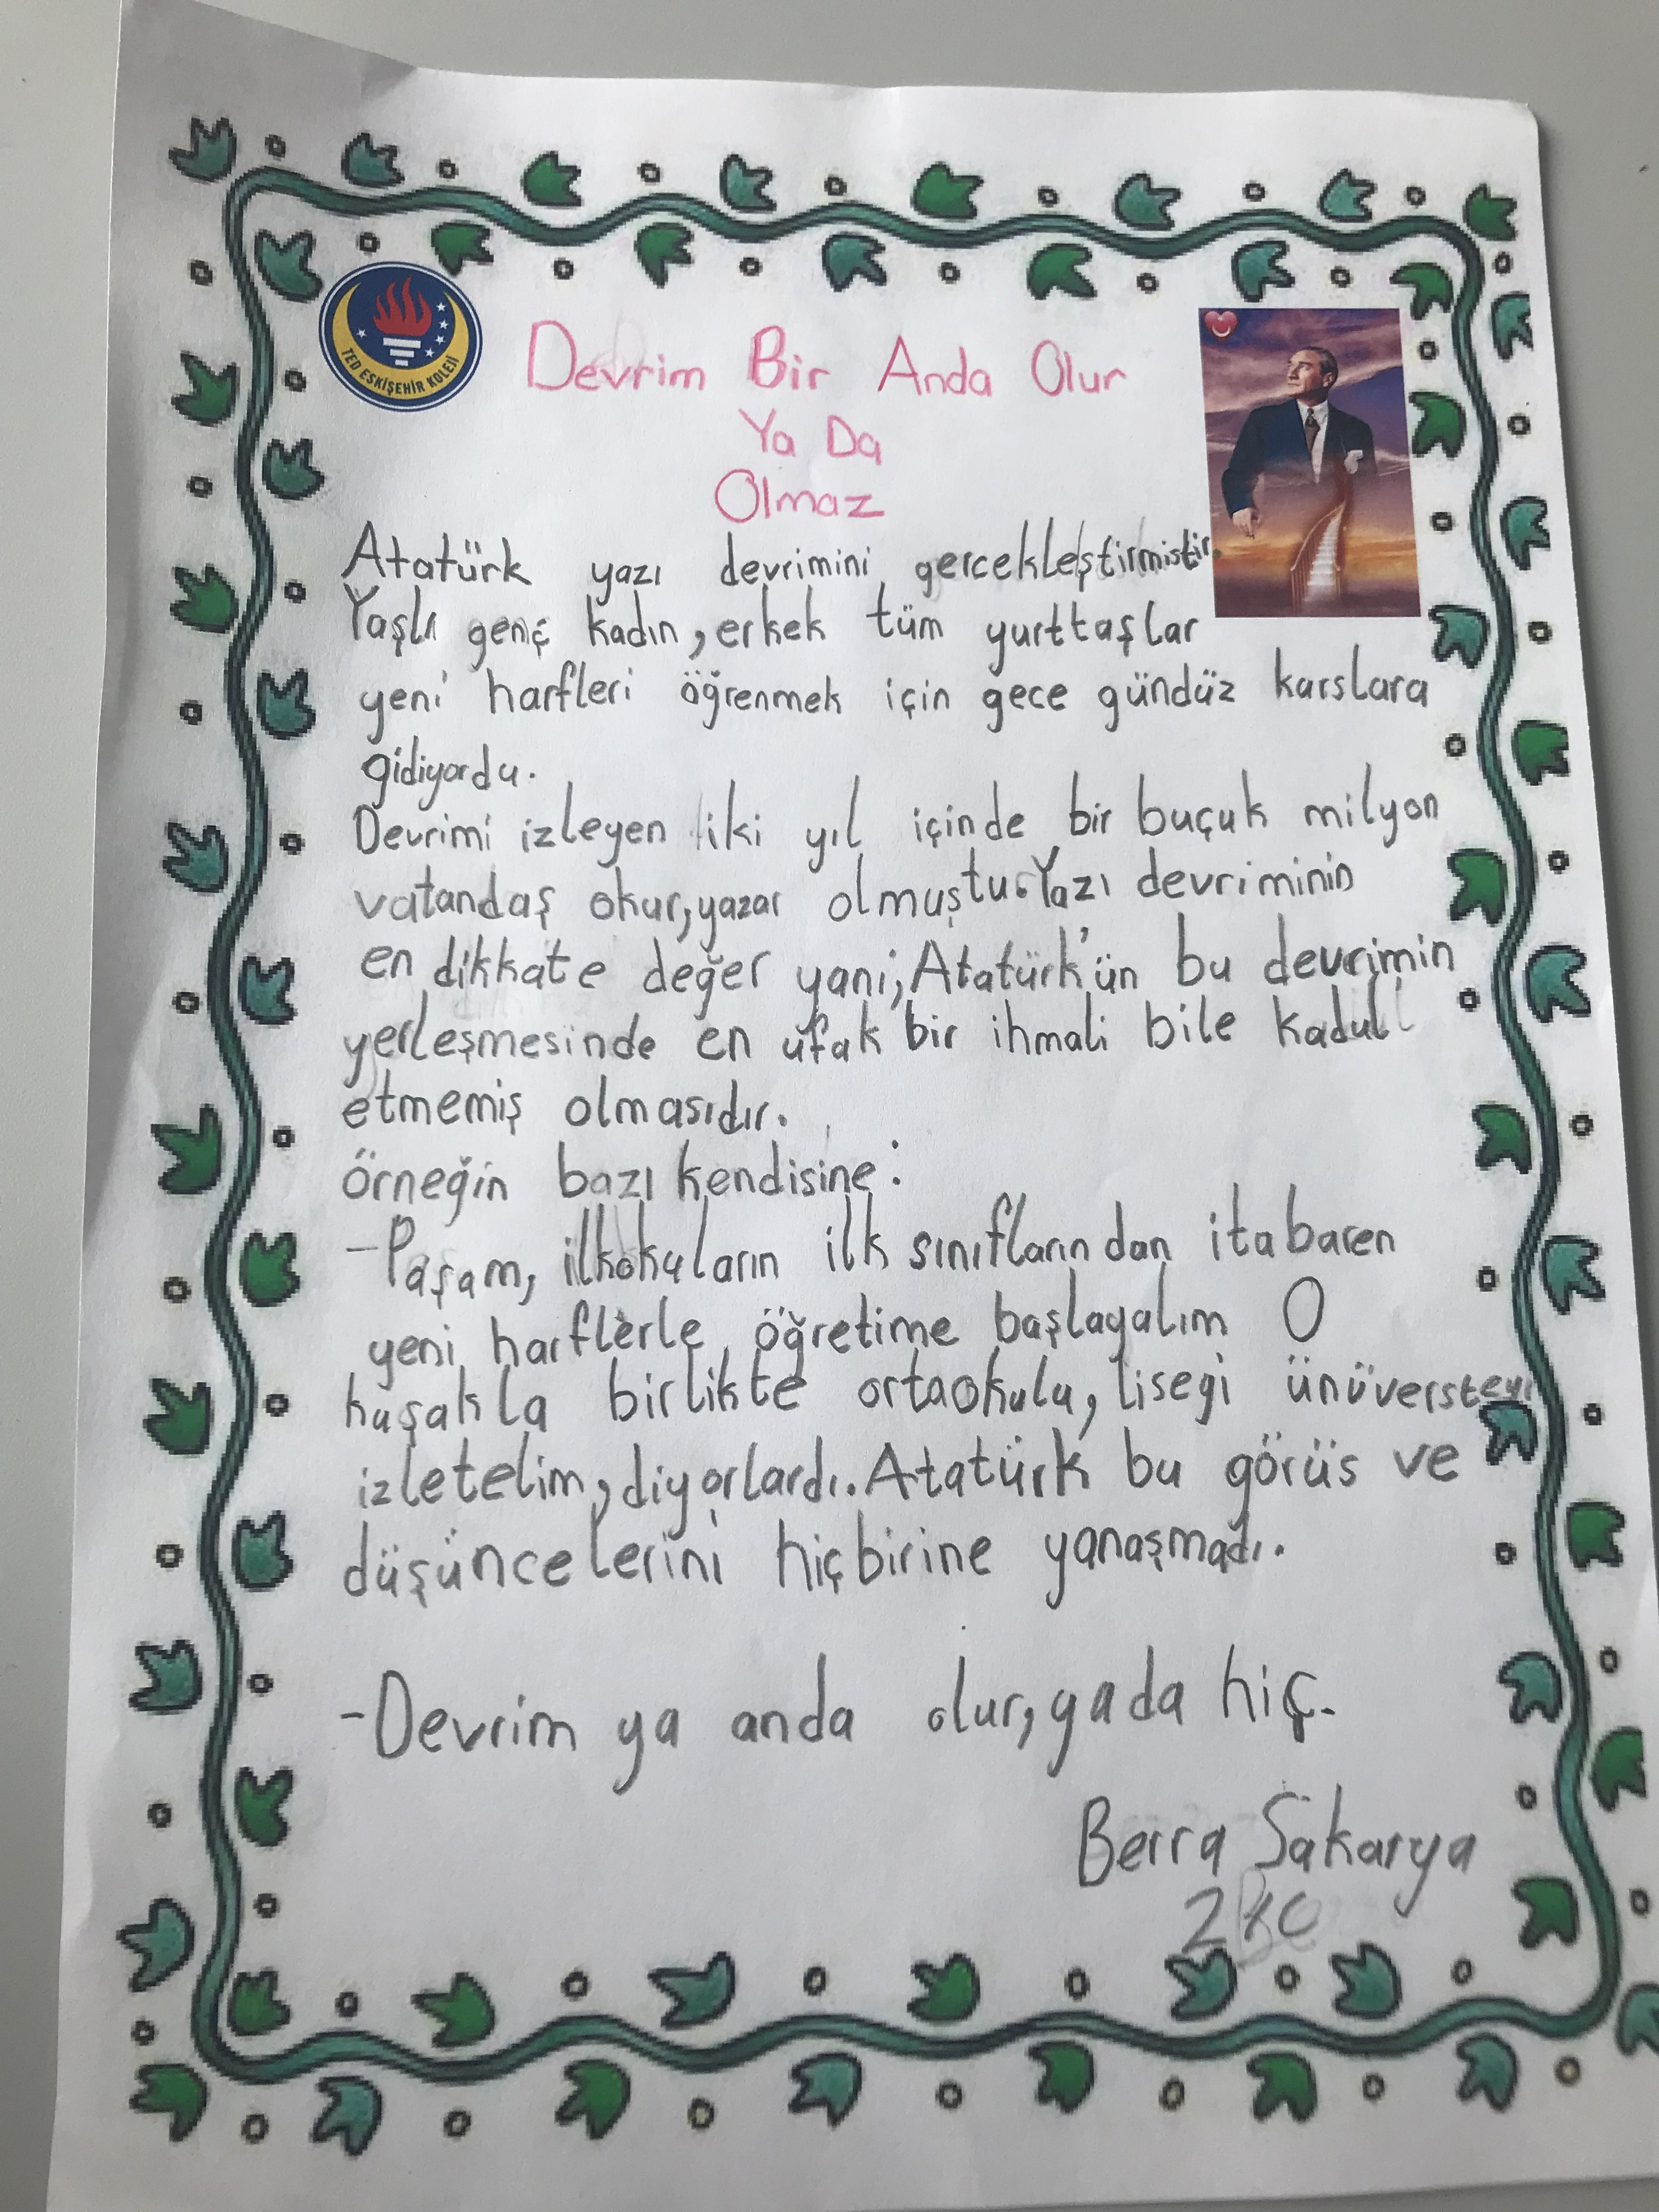 TED ESKİŞEHİR KOLEJİ
Devrim Bir Anda Olur
Ya Da
Olmaz
Atatürk yazı devrimini gercekleştirmistir.
Yaşlı genç kadın, erkek tüm yurttaşlar
yeni harfleri öğrenmek için gece gündüz kurslara
gidiyordu.
Devrimi izleyen iki yıl içinde bir buçuk milyon
vatandaş okur,yazar olmuştu.Yazı devriminin
en dikkate değer yani; Atatürk'ün bu devrimin
yerleşmesinde en ufak bir ihmali bile kadul
etmemiş olmasıdır.
örneğin bazı kendisine:
-Paşam, ilkokuların ilk sınıflarından itabaren
yeni harflerle öğretime başlayalım O
kuşakla birlikte ortaokulu, liseyi ünüversteyi
izletelim, diyorlardı. Atatürk bu görüs ve
düşüncelerini hiçbirine yanaşmadı.
-Devrim ya anda olur, yada hiç.
Berra Sakarya